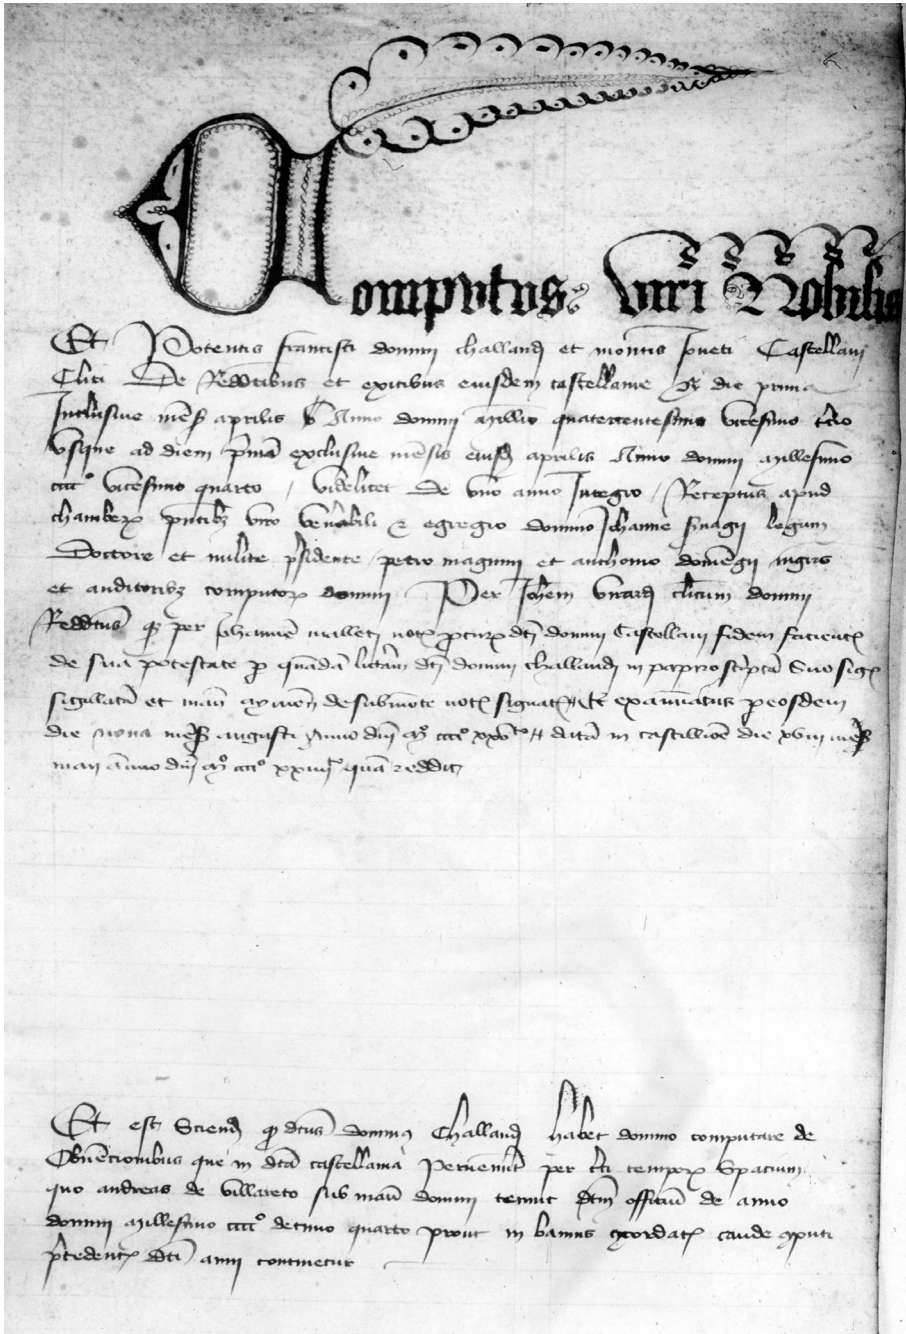 Computus Viri Nobilis
Et Potentis francisci domini challandi et montis Joveti Castellani
De Redditibus et exitibus eiusdem castellanie A die prima
Inclusive mens aprilis Anno domini millio quatercentesimo vicesimo tercio
Usque ad diem primam exclusive mensis eiusdem aprilis Anno domini millesimo
cccco vicesimo quarto / videlicet De uno anno Integro / Receptus apud
chamberz putibz viro venerabili et egregio domino Johanne legum
Doctore et milite presidente petro magnini et anthonio domengii mgris
et auditoribz computorz domini Per Johem clicum domini
Redditus per Johannem malleti notz dti domini Castellani fidem facientz
de sua potestate p quadam litam dti domini challandi in papiro scripta suo sigz
sigillatam et manu aymon de submote notz signatz Et examinatus per eosdem
die nona mens augusti Anno dni mo cccco xxvto data in castillione die xviii mens
maii anno dni mo cccco xxiiiito quam reddit
Et est Sciend q dtus dominus Challandi habet domino computare de
Obvencionibus que in dta castellania pervenerunt per tci temporz spacium
quo andreas de villareto sub manu domini tenuit dtm officium de anno
domini millesimo cccco decimo quarto prout in bannis concordatz caude computi
precedentz dti anni continetur